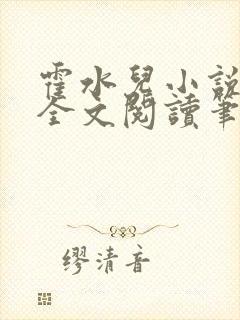 霍水兒小説
全文閲讀筆
繆清音